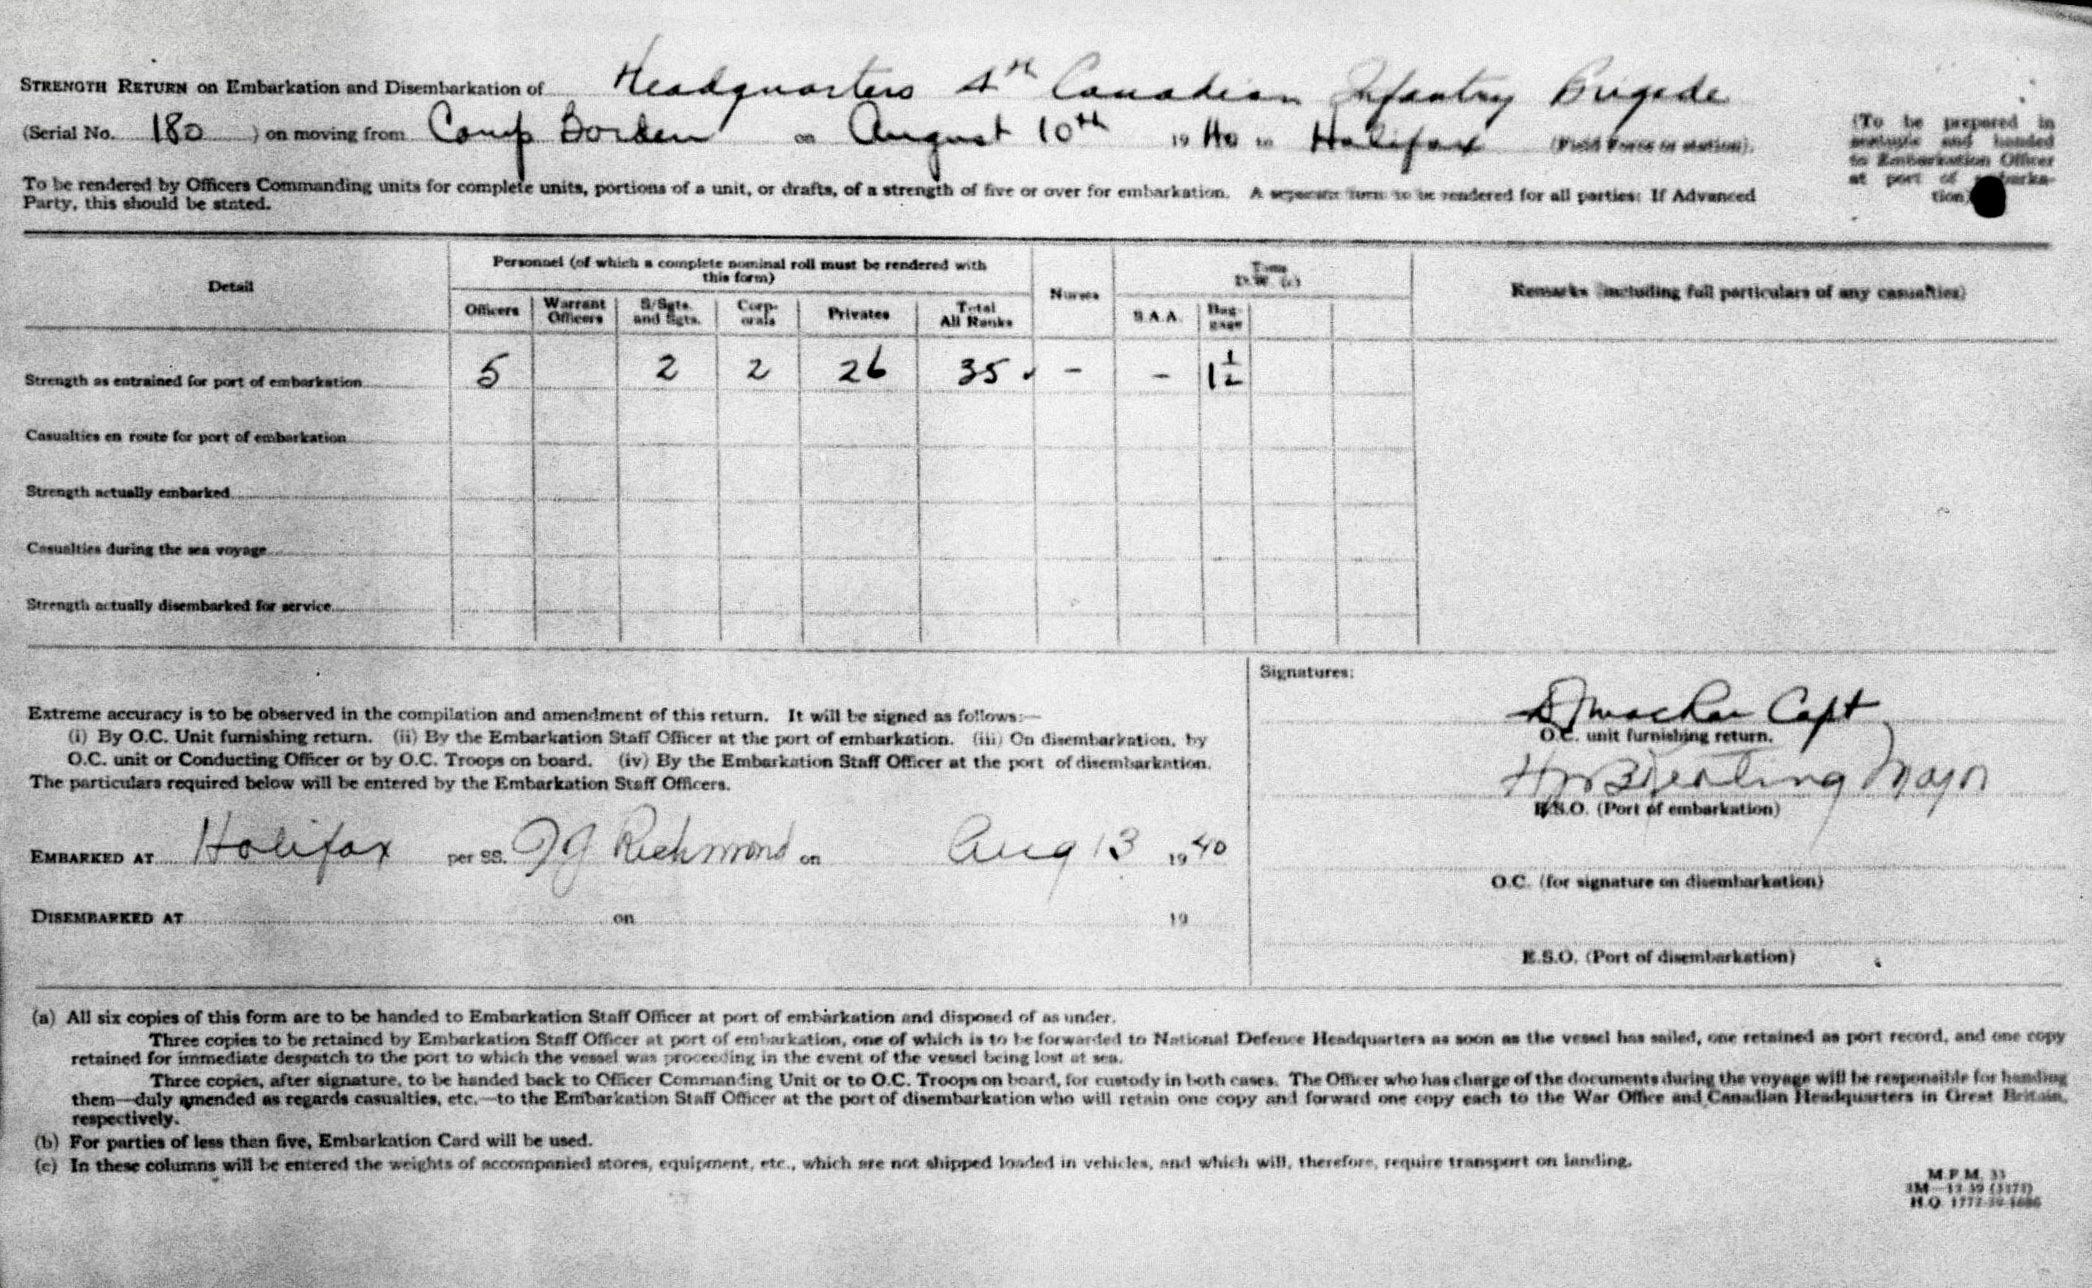 STRENGTH RETURN on Embarkation and Disembarkation of Headquarters 4th Canadian Infantry Brigade
(Serial No. 180 ) on moving from Camp Borden on August 10th 19 40 to Halifax (Field Force or station).
(To be prepared in
sextuple and handed
to Embarkation Officer
at port of embarka-
tion)
To be rendered by Officers Commanding units for complete units, portions of a unit, or drafts, of a strength of five or over for embarkation. A separate form to be rendered for all parties: If Advanced
Party, this should be stated.
Detail
Personnel (of which a complete nominal roll must be rendered with
this form)
Nurses
Tons
D.W. (c)
Remarks (including full particulars of any casualties)
Officers Warrant Officers S/Sgts. and Sgts. Corp-orals Privates Total All Ranks S.A.A. Bag-gage
Strength as entrained for port of embarkation 5 2 2 26 35 - - 1 1/2
Casualties en route for port of embarkation
Strength actually embarked
Casualties during the sea voyage
Strength actually disembarked for service
Signatures:
Extreme accuracy is to be observed in the compilation and amendment of this return. It will be signed as follows:—
(i) By O.C. Unit furnishing return. (ii) By the Embarkation Staff Officer at the port of embarkation. (iii) On disembarkation, by
O.C. unit or Conducting Officer or by O.C. Troops on board. (iv) By the Embarkation Staff Officer at the port of disembarkation.
The particulars required below will be entered by the Embarkation Staff Officers.
Capt
O.C. unit furnishing return.
Major
E.S.O. (Port of embarkation)
EMBARKED AT Halifax per SS. Richmond on Aug 13 19 40
O.C. (for signature on disembarkation)
DISEMBARKED AT on 19
E.S.O. (Port of disembarkation)
(a) All six copies of this form are to be handed to Embarkation Staff Officer at port of embarkation and disposed of as under.
Three copies to be retained by Embarkation Staff Officer at port of embarkation, one of which is to be forwarded to National Defence Headquarters as soon as the vessel has sailed, one retained as port record, and one copy
retained for immediate despatch to the port to which the vessel was proceeding in the event of the vessel being lost at sea.
Three copies, after signature, to be handed back to Officer Commanding Unit or to O.C. Troops on board, for custody in both cases. The Officer who has charge of the documents during the voyage will be responsible for handing
them—duly amended as regards casualties, etc.—to the Embarkation Staff Officer at the port of disembarkation who will retain one copy and forward one copy each to the War Office and Canadian Headquarters in Great Britain,
respectively.
(b) For parties of less than five, Embarkation Card will be used.
(c) In these columns will be entered the weights of accompanied stores, equipment, etc., which are not shipped loaded in vehicles, and which will, therefore, require transport on landing.
M.F.M. 33
H.Q.